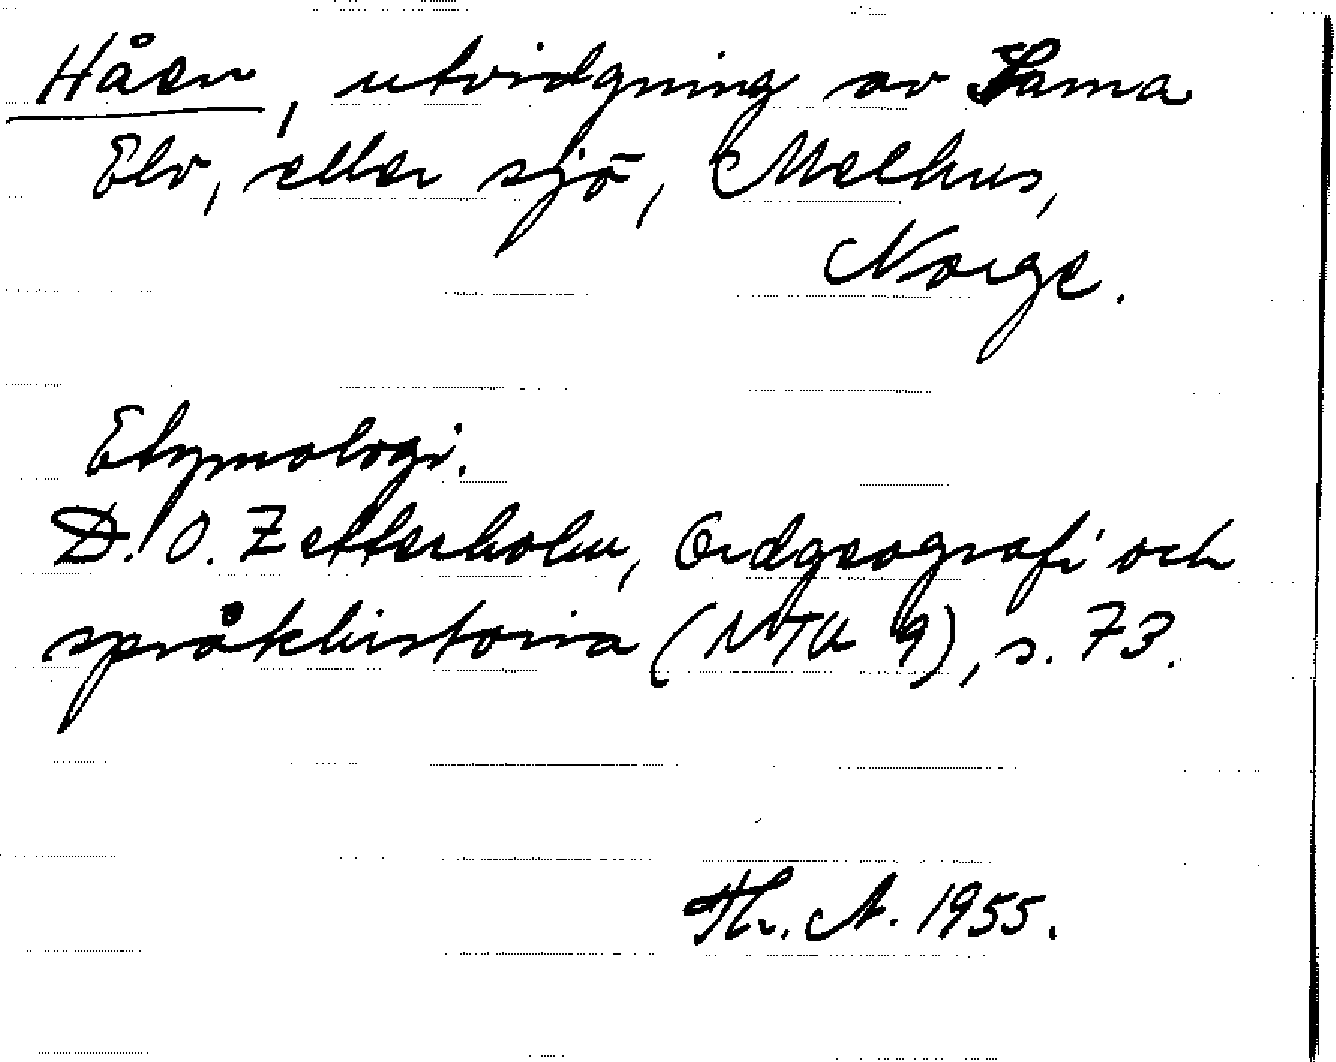 Håen, utvidgning av Sama
Elv, eller sjö, Melhus,
Norge.
Etymologi.
D. O. Zetterholm, Ordgeografi och
språkhistoria (NTU 9), s. 73.
Th. A. 1955.